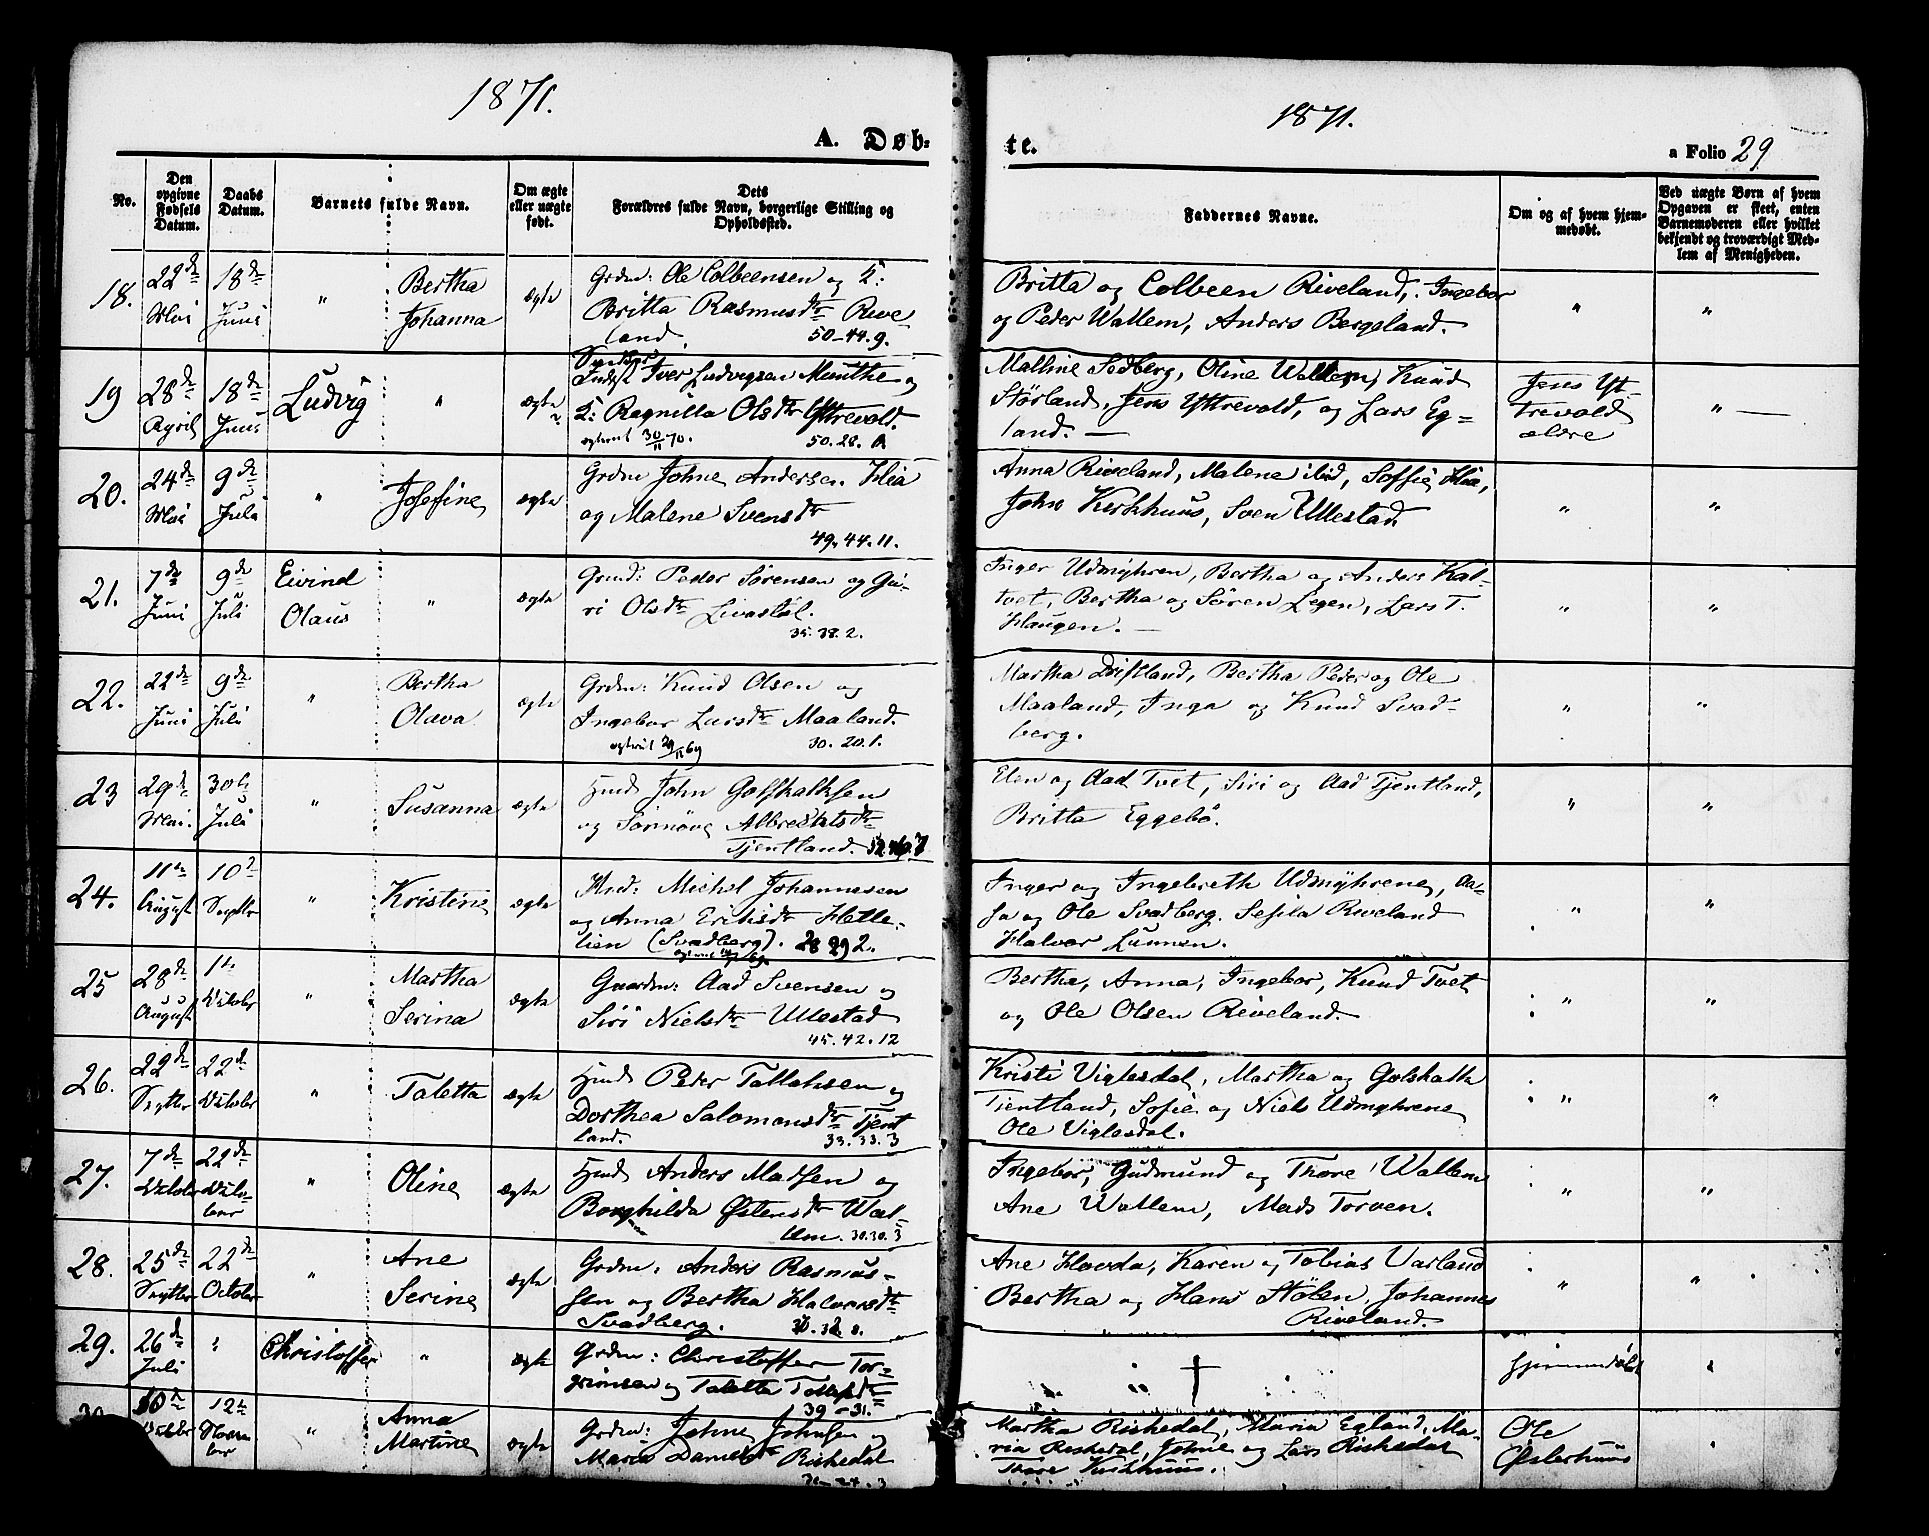 1871.
A. Døb-
No.
Den opgivne Fødsels Datum.
Daabs Datum.
Barnets fulde Navn.
Om ægte eller uægte født.
Dets Forældres fulde Navn, borgerlige Stilling og Opholdssted.
1871.
te.
a Folio 29
Faddernes Navne.
Om og af hvem hjemmedøbt.
Ved uægte Børn af hvem Opgaven er skeet, enten Barnemoderen eller hvilket bekjendt og troværdigt Medlem af Menigheden.
18. 22de Mai 18de Juni " Bertha Johanna ægte
Grdm: Ole Colbeensen og K:
Britta Rasmusdtr Rive-
land. 50-44.9.
Britta og Colbeen Riveland, Ingebor
og Peder Wallem, Anders Bergeland. " "
19 28de April 18de Juni Ludvig " ægte
Indst Iver Ludvigsen Munthe og
K: Ragnilla Olsdtr Yttrevold.
ægteviet 30/11 70. 50. 28. 0
Malline Sedberg, Oline Wallem, Knud
Störland, Jens Yttrevold, og Lars Eg-
land. —
Jens Yt-
trevold
ældre
" —
20. 24de Mai 9de Juli " Josefine ægte
Grdm Johne Andersen Hia
og Malene Svensdtr
49. 44. 11.
Anna Riveland, Malene ibid, Soffie Hia,
John Kirkhuus, Sven Ullestad " "
21. 7de Juni 9de Juli Eivind Olaus " ægte
Grmd: Peder Sørensen og Gu-
ri Olsdtr Livastøl.
35. 38. 2.
Inger Udmyhren, Bertha og Anders Kal-
tvet, Bertha og Sören Legen, Lars T.
Haugen. — " "
22. 22de Juni 9de Juli " Bertha Olava. ægte
Grdm: Knud Olsen og
Ingebor Larsdtr Maaland.
ægteviet 29/11 69 30. 20. 1.
Martha Driftland, Bertha Peder og Ole
Maaland, Inga og Knud Svad-
berg. " "
23 29de Mai. 30te Juli " Susanna ægte
Hmd John Golskalksen
og Sørnøve Albrechtsdtr
Tjentland.
Elen og Aad Tvet, Siri og Aad Tjentland,
Britta Eggebö. " "
24. 11te August 10de Septbr " Kristine ægte
Hmd: Michel Johannesen
og Anna Eriksdtr Hette-
lien (Svadberg). 28 29 2.
Inger og Ingebreth Udmyhrene, Aa-
sa og Ole Svadberg. Sesila Riveland
Halvor Lunnen. " "
25 28de August 1te Octobr " Martha Serina ægte
Gaardm: Aad Svensen og
Siri Nielsdtr Ullestad
45. 42. 12
Bertha, Anna, Ingebor, Knud Tvet
og Ole Olsen Riveland. " "
26. 22de Septbr 22de Octobr " Taletta ægte
Hmd Peder Tallaksen og
Dorthea Salomonsdtr Tjent
land. 33. 33. 3
Kristi Viglesdal, Martha og Golskalk
Tjentland, Sofie og Niels Udmyhrene
Ole Viglesdal. " "
27. 7de Octobr 22de October " Oline ægte
Hmd Anders Madsen og
Borghilda Østensdtr Wal-
lem. 30. 30. 3
Ingebor, Gudmund og Thore Wallem
Ane Wallem, Mads Torven. " "
28. 25de Septbr 22de Octobr " Ane Serine ægte
Grdm: Anders Rasmus-
sen og Bertha Halvorsdtr
Svadberg.
Ane Hovda, Karen og Tobias Varland
Bertha og Hans Stölen, Johannes
Riveland. " "
29. 26de Juli " Christoffer " ægte
Grdm: Christoffer Tor-
grimsen og Taletta Tollefsdtr
39-31.
" " † hjemmedøbt "
10de Octobr 12te November " Anna Martine ægte
Grdm: Johne Johnsen og
Maria Danielsdtr Riskedal
Martha Riskedal, Maria Egland, Ma-
ria Riskedal, Johne og Lars Riskedal
Thore Kirkhuus.
Ole
Østerhuus "